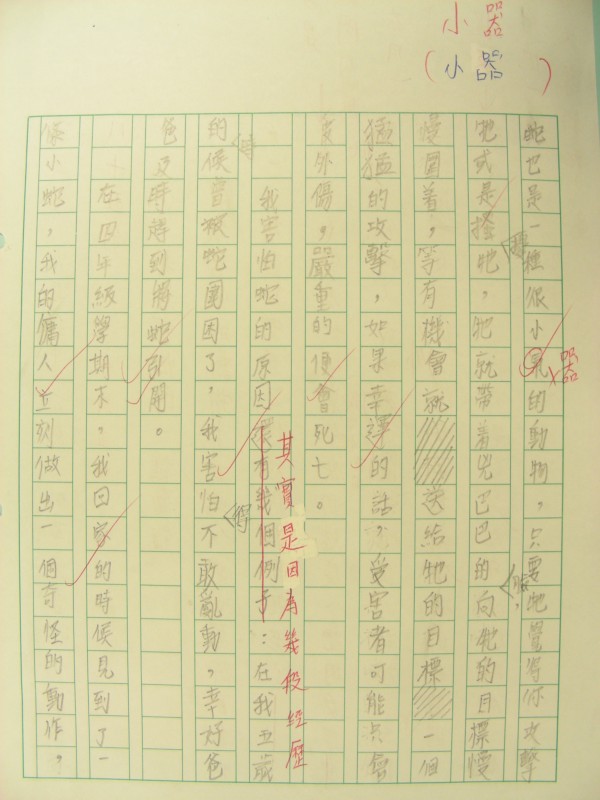 小器
(小器)
蛇也是一種很小氣的動物，只要牠覺得你攻擊
器
牠或是搔牠，牠就帶着兇巴巴的向牠的目標慢
慢圍着，等有機會就送給牠的目標一個
猛猛的攻擊，如果幸運的話，受害者可能只會
受外傷，嚴重的便會死亡。
其實是因為幾段經歷
我害怕蛇的原因還有幾個例子：在我五歲
的時候曾被蛇圍困了，我害怕得不敢亂動，幸好爸
爸及時將蛇引開。
在四年級學期末，我回家的時候見到了一
條小蛇，我的傭人立刻做出一個奇怪的動作，